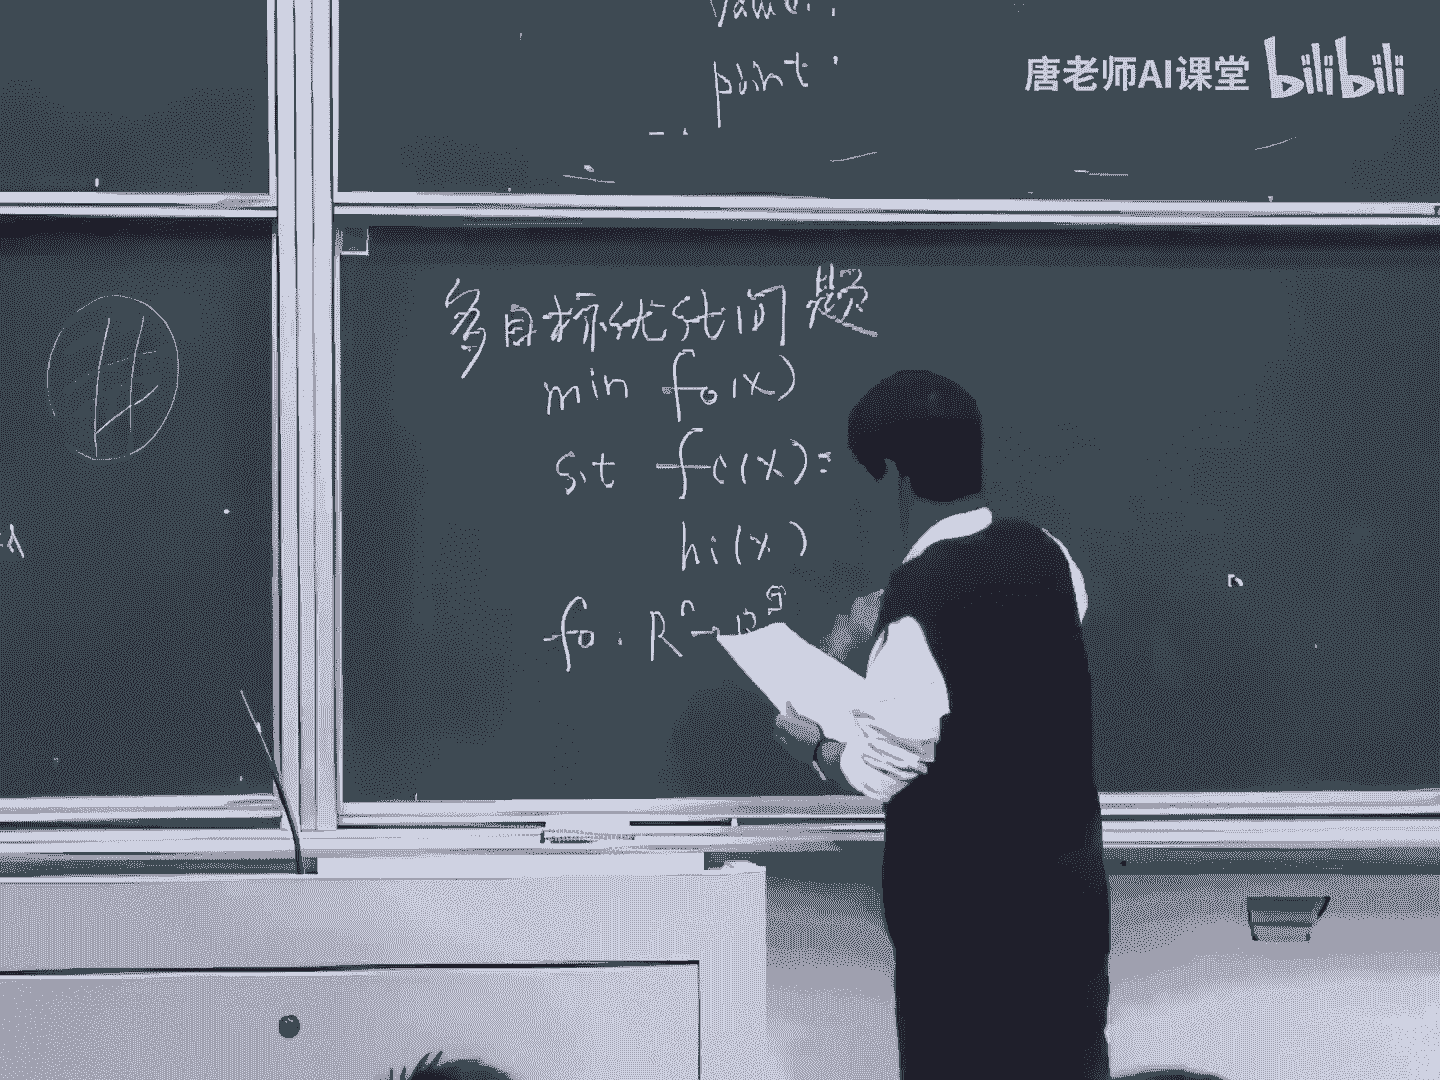 point
唐老师AI课堂 bilibili
多目标优化问题
min f₀(x)
s.t fᵢ(x)=
hᵢ(x)
f₀: Rⁿ→R^q